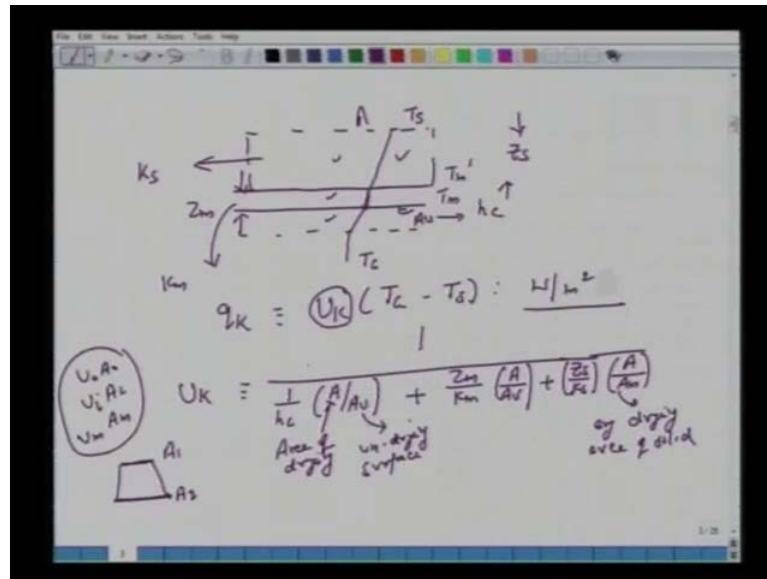 File Edit View Insert Actions Tools Help
A Ts
Ks
Zs
Tm'
Zm
Tm
Au → hc
Tc
Km
qK ≡ UK (Tc - Ts) : W/m²
UoAo
UiAi
UmAm
UK ≡ 1 / ( 1/hc (A/Au) + Zm/Km (A/Au) + (Zs/Ks) (A/Am) )
Area of drying
un-drying surface
avg drying area of solid
A1
A2